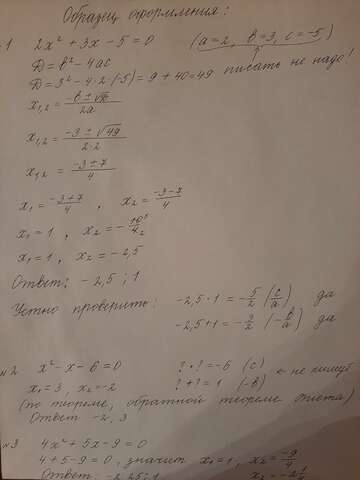 Образец оформления:
1 2x² + 3x - 5 = 0 (a = 2, b = 3, c = -5)
D = b² - 4ac писать не надо!
D = 3² - 4·2·(-5) = 9 + 40 = 49
x₁,₂ = (-b ± √D)/2a
x₁,₂ = (-3 ± √49)/2·2
x₁,₂ = (-3 ± 7)/4
x₁ = (-3+7)/4 , x₂ = (-3-7)/4
x₁ = 1 , x₂ = -10⁵/4₂
x₁ = 1 , x₂ = -2,5
Ответ: -2,5 ; 1
Устно проверить: -2,5·1 = -5/2 (c/a) да
-2,5+1 = -3/2 (-b/a) да
№2 x² - x - 6 = 0 ? · ? = -6 (c) ← не пишут
x₁ = 3, x₂ = -2 ? + ? = 1 (-b)
(по теореме, обратной теореме Виета)
Ответ -2, 3
№3 4x² + 5x - 9 = 0
4 + 5 - 9 = 0, значит x₁ = 1, x₂ = -9/4
Ответ: -2,25; 1